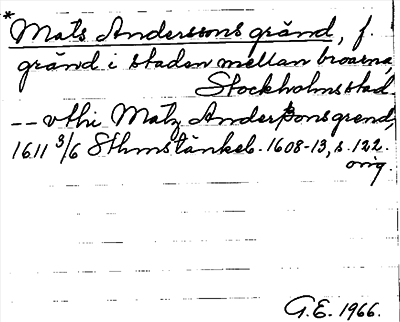 * Mats Anderssons gränd, f.
gränd i staden mellan broarna,
Stockholms stad.
-- vthi Matz Anderßons grend,
1611 3/6 Sthmstänkeb. 1608-13, s. 122.
orig.
G.E. 1966.